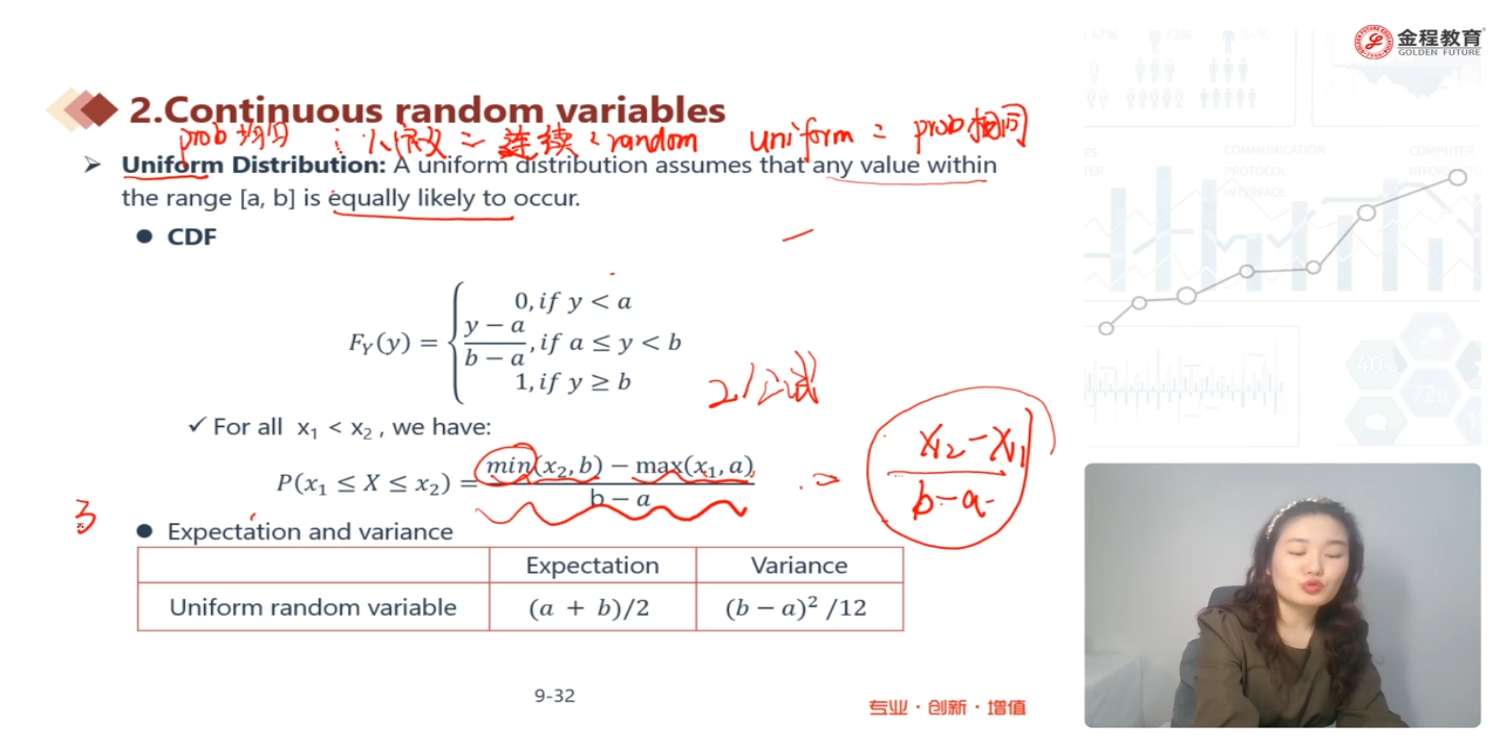 金程教育
GOLDEN FUTURE
2.Continuous random variables
prob 均匀 : 定义 = 连续 random uniform = prob相同
➤ Uniform Distribution: A uniform distribution assumes that any value within
the range [a, b] is equally likely to occur.
● CDF
0, if y < a
F_Y(y) = { (y − a)/(b − a), if a ≤ y < b
1, if y ≥ b
✓ For all x₁ < x₂ , we have:
P(x₁ ≤ X ≤ x₂) = (min(x₂, b) − max(x₁, a))/(b − a)
= (x₂ − x₁)/(b − a)
3
● Expectation and variance
Expectation Variance
Uniform random variable (a + b)/2 (b − a)² /12
9-32
专业·创新·增值
COMMUNICATION
PROTOCOL
INTERFACE